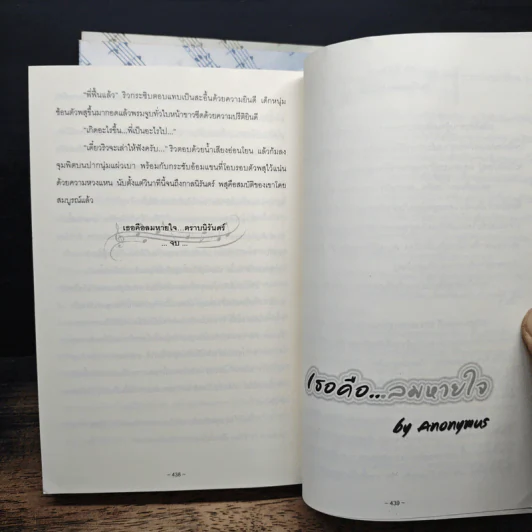 "พี่ฟื้นแล้ว" ริวกระซิบตอบแทบเป็นสะอื้นด้วยความยินดี เด็กหนุ่ม
ช้อนตัวพสุขึ้นมากอดแล้วพรมจูบทั่วใบหน้าขาวซีดด้วยความปรีติยินดี
"เกิดอะไรขึ้น...พี่เป็นอะไรไป..."
"เดี๋ยวริวจะเล่าให้ฟังครับ..." ริวตอบด้วยน้ำเสียงอ่อนโยน แล้วก้มลง
จุมพิตบนปากนุ่มแผ่วเบา พร้อมกับกระชับอ้อมแขนที่โอบรอบตัวพสุไว้แน่น
ด้วยความหวงแหน นับตั้งแต่วินาทีนี้จนถึงกาลนิรันดร์ พสุคือสมบัติของเขาโดย
สมบูรณ์แล้ว
เธอคือลมหายใจ...ตราบนิรันดร์
... จบ ...
~ 438 ~
เธอคือ...ลมหายใจ
by Anonymus
~ 439 ~